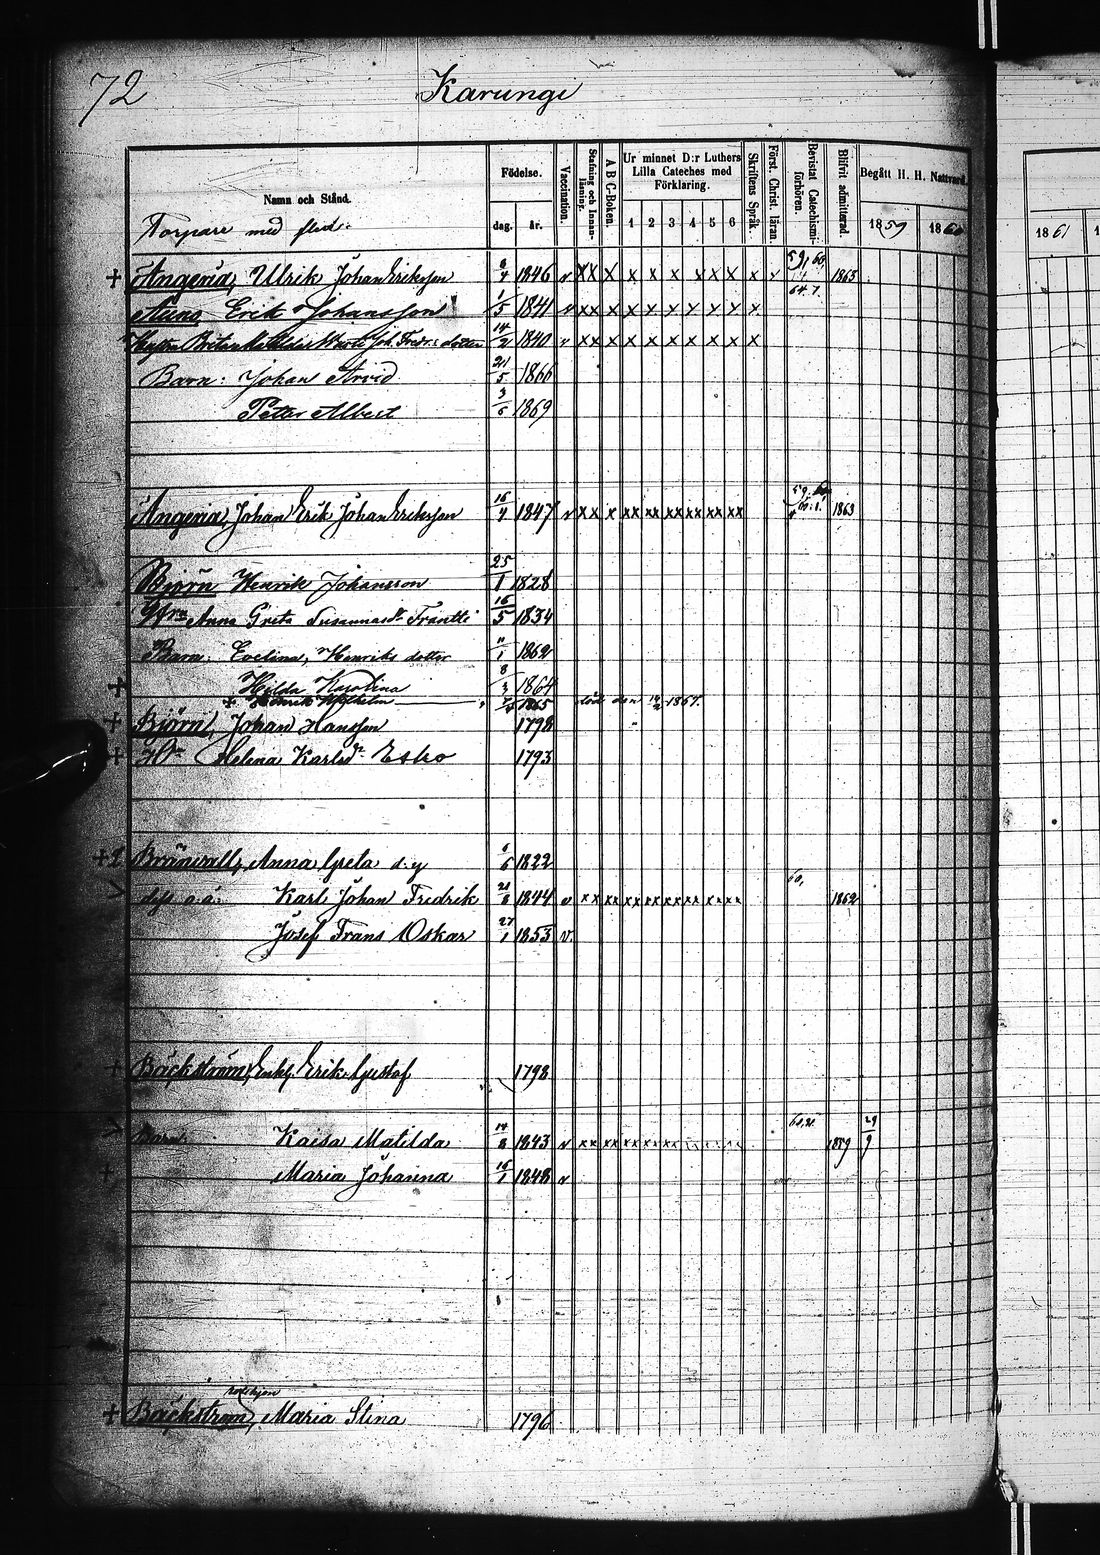 72
Karungi
Namn och Stånd.
Födelse.
dag. år.
Vaccination.
Stafning och Innanläsning.
A B C-Boken.
Ur minnet D:r Luthers Lilla Cateches med Förklaring.
1 2 3 4 5 6
Skriftens Språk.
Först. Christ. läran.
Bevistat Catechismi-förhören.
Blifvit admitterad.
Begått H. H. Nattvard.
1859 1860
1861
Torpare med flera.
+ Angeria, Ulrik Johan Eriksson 1846 v x x x x x x x x x x v 59, 60, 64. 7. 1863
Erik Johansson 1/5 1841 v x x x x x x x x x x
14/2 1840 v x x x x x x x x x x
Barn: Johan Arvid 21/5 1866
Peter Albert 3/6 1869
Angeria, Johan Erik Johan Eriksson 1847 v x x x xx xx xx xx xx xx 59. 1863
Björn Henrik Johansson 25/1 1828
Anna Greta Susannasdr Frantti 16/5 1834
Barn: Evelina, Henriks dotter 11/1 1862
+ Hilda Karolina 8/3 1864
+ Henrik Wilhelm 1865 död den 1867.
+ Björn, Johan Hansson 1798
+ Hu Helena Karlsdr Esko 1793
+ Brännvall, Anna Greta d. y 6/6 1822
dess o.ä. Karl Johan Fredrik 21/8 1844 v x x xx xx xx xx xx xx xx 60, 1862
Josef Frans Oskar 27/1 1853 v.
+ Bäckström, Enkl. Erik Gustaf 1798
Barn: Kaisa Matilda 14/8 1843 v xx xx xx xx xx 1859 29/9
+ Maria Johanna 16/1 1848 v
+ Bäckström, Maria Stina 1796